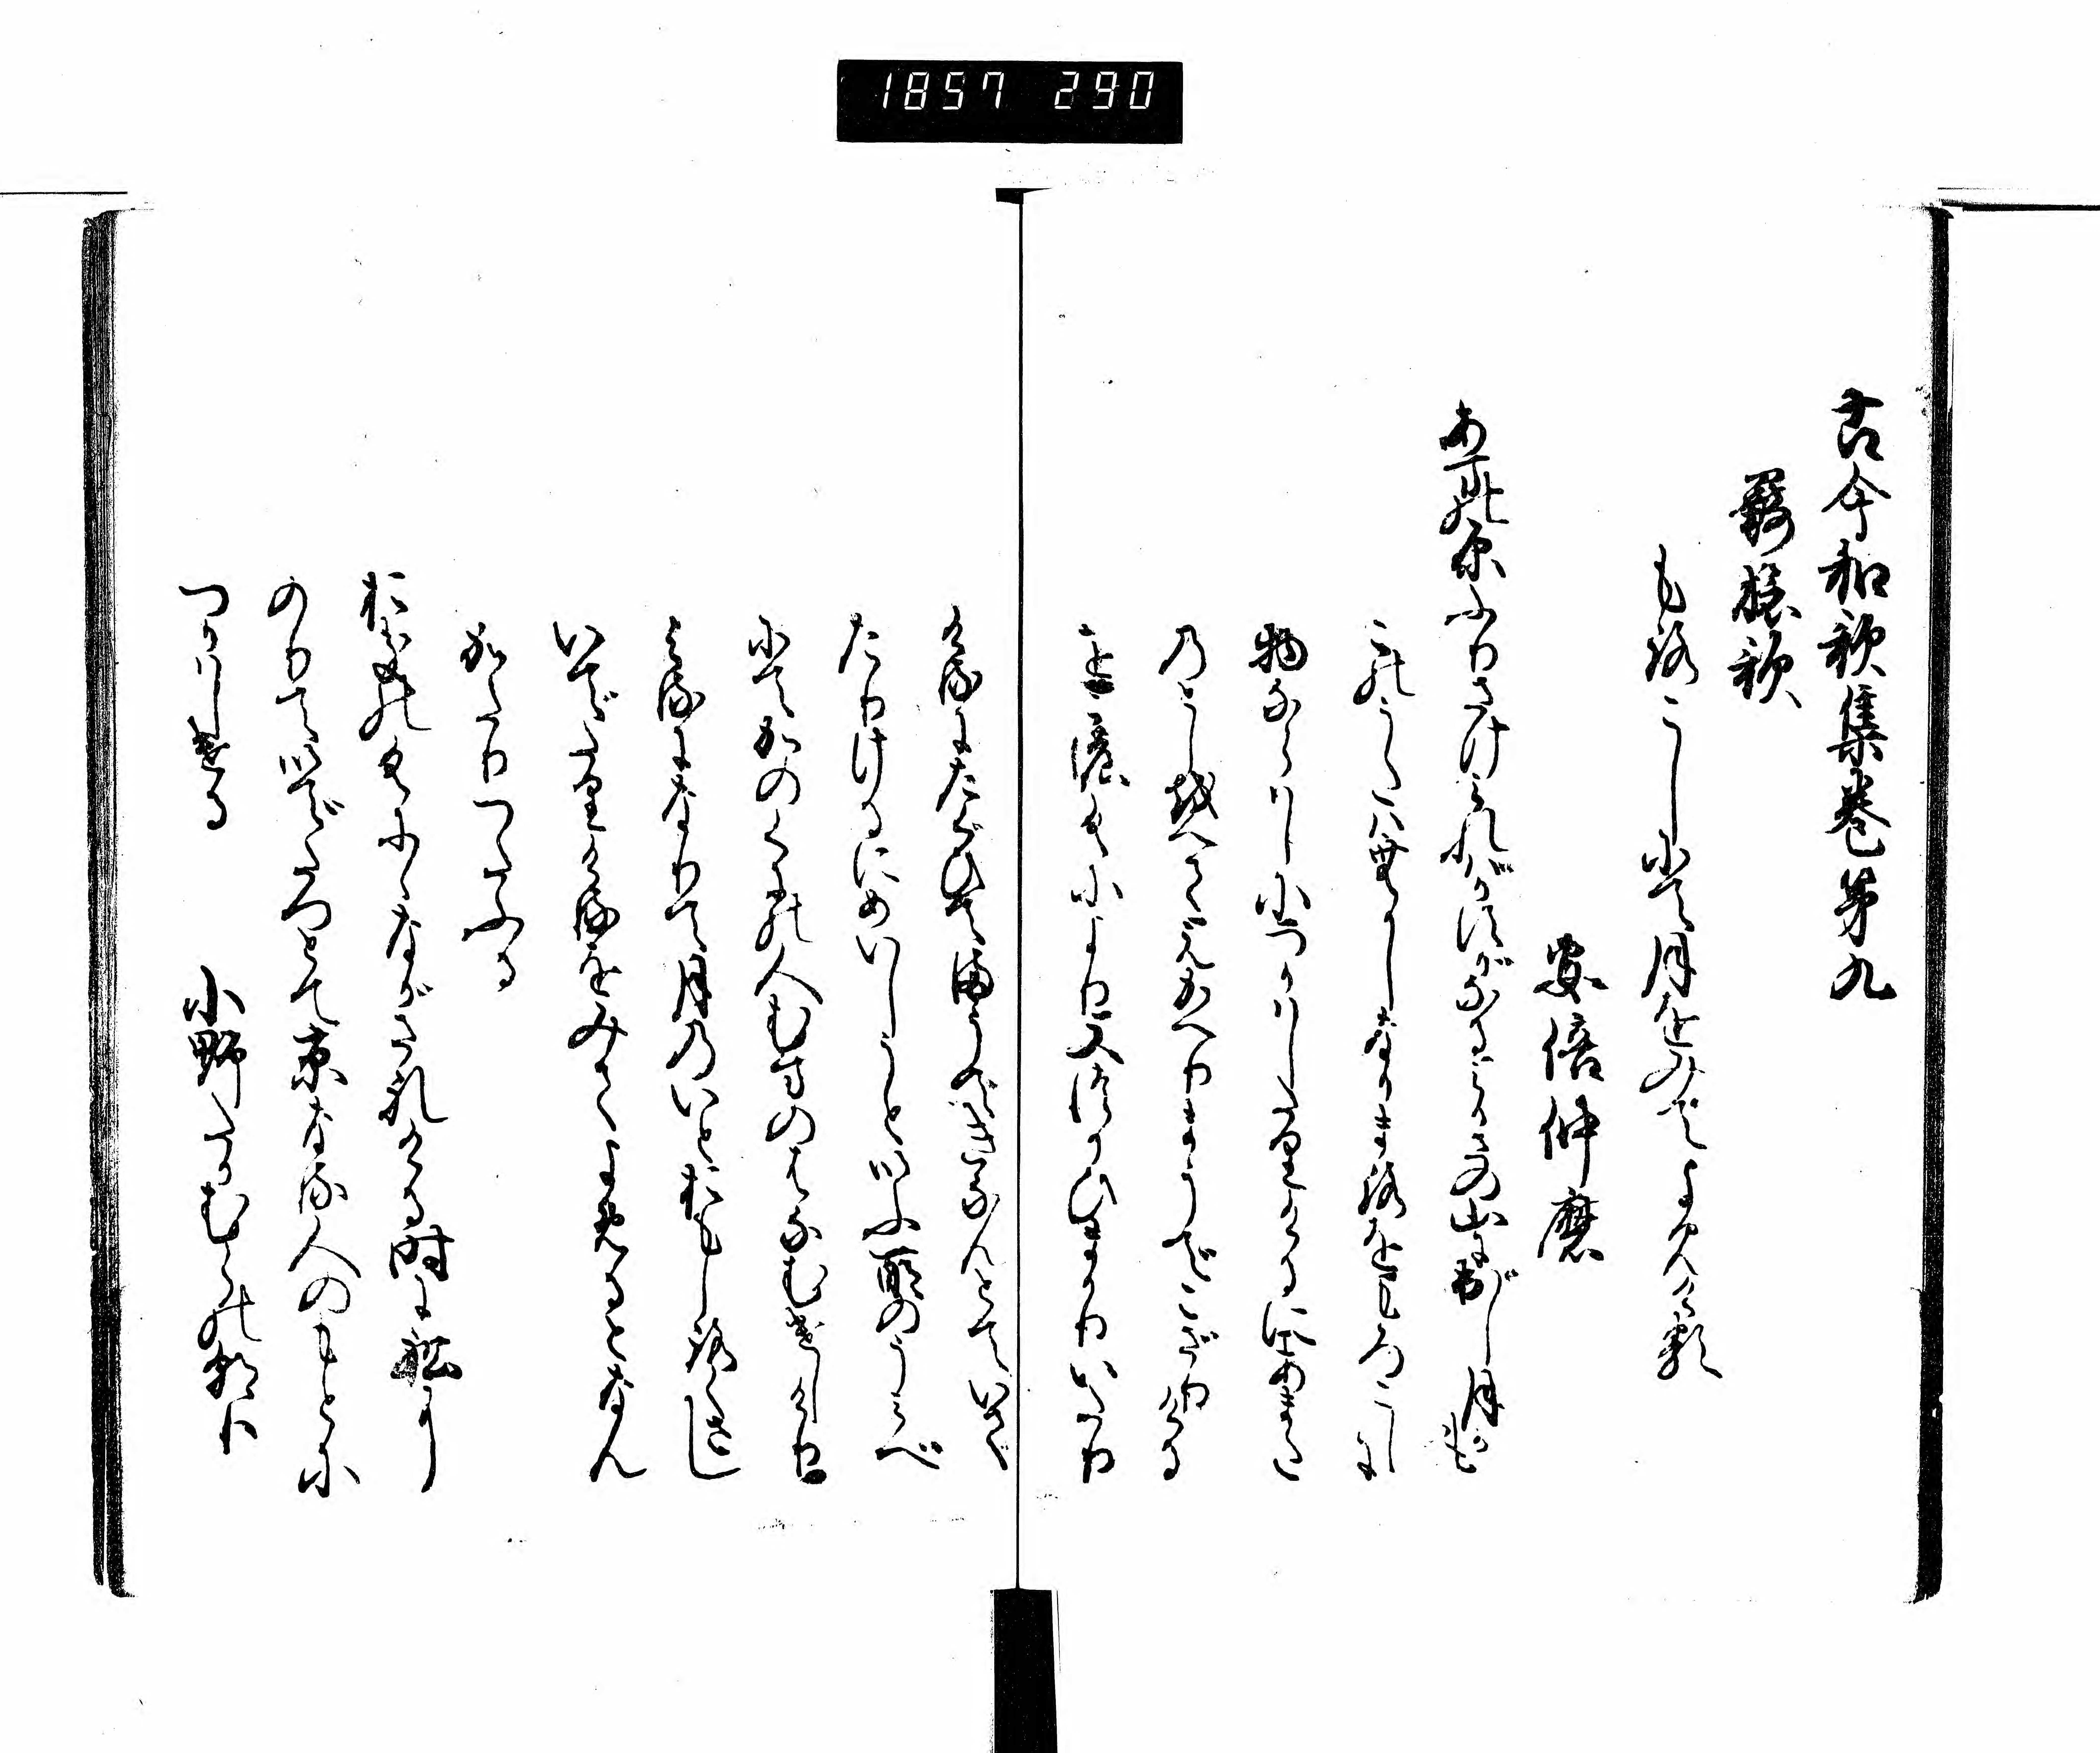 1857 290
古今和歌集巻第九
羇旅歌
も路こし尓て月をみてよみける
安倍仲麿
あまの原ふりさけみれバかすがなるみかさの山に出でし月かも
このうたハむかしなかま路をもろこしに
物ならハし尓つかハしたりける尓あまた
のとし越へてえかへりまうでこざりける
をこの國より又つかひまかりいたり
けるにたぐひてまうできなんとていで
たりけるにめいしうといふ所のうミべ
尓てかのくにの人むまのはなむけしけり
よるになりて月のいとおもし路くさし
いでたりけるをみてよめるとなん
かたりつたふる
おきのくにゝながされける時に舩に
のりていでたつとて京なる人のもと尓
つかハしける　小野たかむらの朝臣